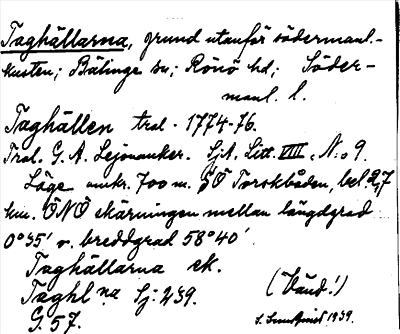 Taghällarna, grund utanför södermanl.-
kusten; Bälinge sn; Rönö hd; Söder-
manl. l.
Taghällen tral. 1774-76.
Tral. G. A. Lejonanker. SjA. Litt. VIII, No 9.
Läge omkr. 700 m. SÖ Torskbåden, bel 2,7
km. ÖNÖ skärningen mellan längdgrad
0°35' v. breddgrad 58°40'
Taghällarna ek.
Taghl na Sj: 239.
G. 57. (Vänd!)
1939.